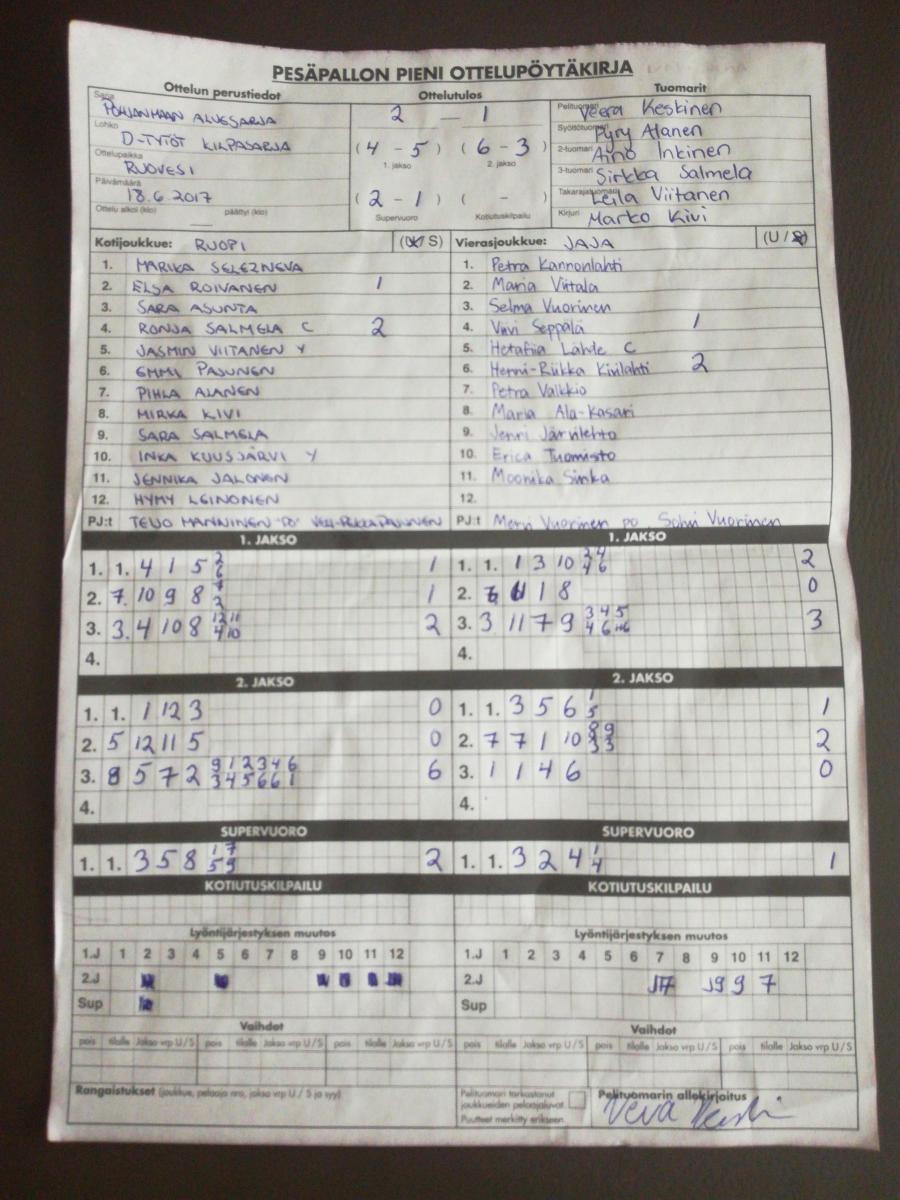 PESÄPALLON PIENI OTTELUPÖYTÄKIRJA
Ottelun perustiedot Ottelutulos Tuomarit
Sarja POHJANMAAN ALUESARJA
Lohko D-TYTÖT KILPASARJA
Ottelupaikka RUOVESI
Päivämäärä 18.6.2017
Ottelu alkoi (klo) päättyi (klo)
2 — 1
( 4 - 5 ) ( 6 - 3 )
1. jakso 2. jakso
( 2 - 1 ) ( - )
Supervuoro Kotiutuskilpailu
Pelituomari Veera Keskinen
Syöttötuomari Pyry Alanen
2-tuomari Aino Inkinen
3-tuomari Sirkka Salmela
Takarajatuomari Leila Viitanen
Kirjuri Marko Kivi
Kotijoukkue: RUOPI (U/ S) Vierasjoukkue: JAJA (U / S)
1. MARIKA SELEZNEVA 1. Petra Kannonlahti
2. ELSA ROIVANEN 1 2. Maria Viitala
3. SARA ASUNTA 3. Selma Vuorinen
4. RONJA SALMELA C 2 4. Viivi Seppälä 1
5. JASMIN VIITANEN Y 5. Lähde C
6. EMMI PAJUNEN 6. Henni-Riikka Kivilahti 2
7. PIHLA ALANEN 7. Petra Valkkio
8. MIRKA KIVI 8. Maria Ala-Kasari
9. SARA SALMELA 9. Jenni Järvilehto
10. INKA KUUSJÄRVI Y 10. Erica Tuomisto
11. JENNIKA JALONEN 11. Moonika Sinka
12. HYMY LEINONEN 12.
PJ:t TEIJO MANNINEN "PO" PJ:t Mervi Vuorinen po, Vuorinen
1. JAKSO 1. JAKSO
1. 1. 4 1 5 2 6 1 1. 1. 1 3 10 2
2. 7 10 9 8 1 2. 1 8 0
3. 3 4 10 8 12 11 4 10 2 3. 3 11 7 9 3 4 5 4 6 3
4. 4.
2. JAKSO 2. JAKSO
1. 1. 1 12 3 0 1. 1. 3 5 6 1 5 1
2. 5 12 11 5 0 2. 7 7 1 10 8 9 3 3 2
3. 8 5 7 2 9 1 2 3 4 6 3 4 5 6 6 1 6 3. 1 1 4 6 0
4. 4.
SUPERVUORO SUPERVUORO
1. 1. 3 5 8 1 7 5 9 2 1. 1. 3 2 4 1 4 1
KOTIUTUSKILPAILU KOTIUTUSKILPAILU
Lyöntijärjestyksen muutos Lyöntijärjestyksen muutos
1.J 1 2 3 4 5 6 7 8 9 10 11 12 1.J 1 2 3 4 5 6 7 8 9 10 11 12
2.J 2.J 9 7
Sup Sup
Vaihdot Vaihdot
pois tilalle Jakso vrp U/S pois tilalle Jakso vrp U/S pois tilalle Jakso vrp U/S pois tilalle Jakso vrp U/S pois tilalle Jakso vrp U/S pois tilalle Jakso vrp U/S
Rangaistukset (joukkue, pelaaja nro, jakso vrp U / S ja syy)
Pelituomari tarkastanut
joukkueiden pelaajaluvat.
Puutteet merkitty erikseen.
Pelituomarin allekirjoitus